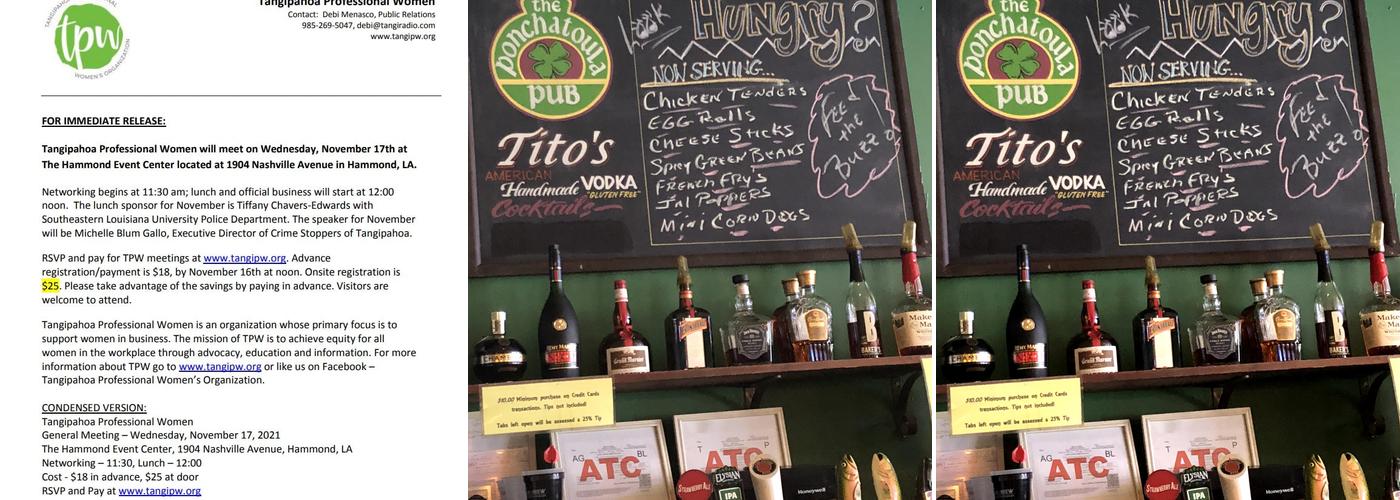 Tangipahoa Professional Women
Contact: Debi Menasco, Public Relations
985-269-5047, debi@tangiradio.com
www.tangipw.org
tpw
WOMEN'S ORGANIZATION
FOR IMMEDIATE RELEASE:
Tangipahoa Professional Women will meet on Wednesday, November 17th at
The Hammond Event Center located at 1904 Nashville Avenue in Hammond, LA.
Networking begins at 11:30 am; lunch and official business will start at 12:00
noon. The lunch sponsor for November is Tiffany Chavers-Edwards with
Southeastern Louisiana University Police Department. The speaker for November
will be Michelle Blum Gallo, Executive Director of Crime Stoppers of Tangipahoa.
RSVP and pay for TPW meetings at www.tangipw.org. Advance
registration/payment is $18, by November 16th at noon. Onsite registration is
$25. Please take advantage of the savings by paying in advance. Visitors are
welcome to attend.
Tangipahoa Professional Women is an organization whose primary focus is to
support women in business. The mission of TPW is to achieve equity for all
women in the workplace through advocacy, education and information. For more
information about TPW go to www.tangipw.org or like us on Facebook –
Tangipahoa Professional Women's Organization.
CONDENSED VERSION:
Tangipahoa Professional Women
General Meeting – Wednesday, November 17, 2021
The Hammond Event Center, 1904 Nashville Avenue, Hammond, LA
Networking – 11:30, Lunch – 12:00
Cost - $18 in advance, $25 at door
RSVP and Pay at www.tangipw.org
the
Ponchatoula
PUB
Hungry?
NOW SERVING...
Chicken Tenders
EGG Rolls
Cheese Sticks
Spicy Green Beans
French Fry's
Jal Poppers
Mini Corn Dogs
Feed
the
Buzz
Tito's
AMERICAN
Handmade VODKA
"GLUTEN FREE"
Cocktails
$10.00 Minimum purchase on Credit Cards
transactions. Tips not included!
Tabs left open will be assessed a 25% Tip
AG
BL
ATC
T
P
ATC
STRAWBERRY ALE
ELYSIAN
IPA
Honeywell
the
Ponchatoula
PUB
Hungry?
NOW SERVING...
Chicken Tenders
EGG Rolls
Cheese Sticks
Spicy Green Beans
French Fry's
Jal Poppers
Mini Corn Dogs
Feed
the
Buzz
Tito's
AMERICAN
Handmade VODKA
"GLUTEN FREE"
Cocktails
$10.00 Minimum purchase on Credit Cards
transactions. Tips not included!
Tabs left open will be assessed a 25% Tip
AG
BL
ATC
T
P
ATC
STRAWBERRY ALE
ELYSIAN
IPA
Honeywell